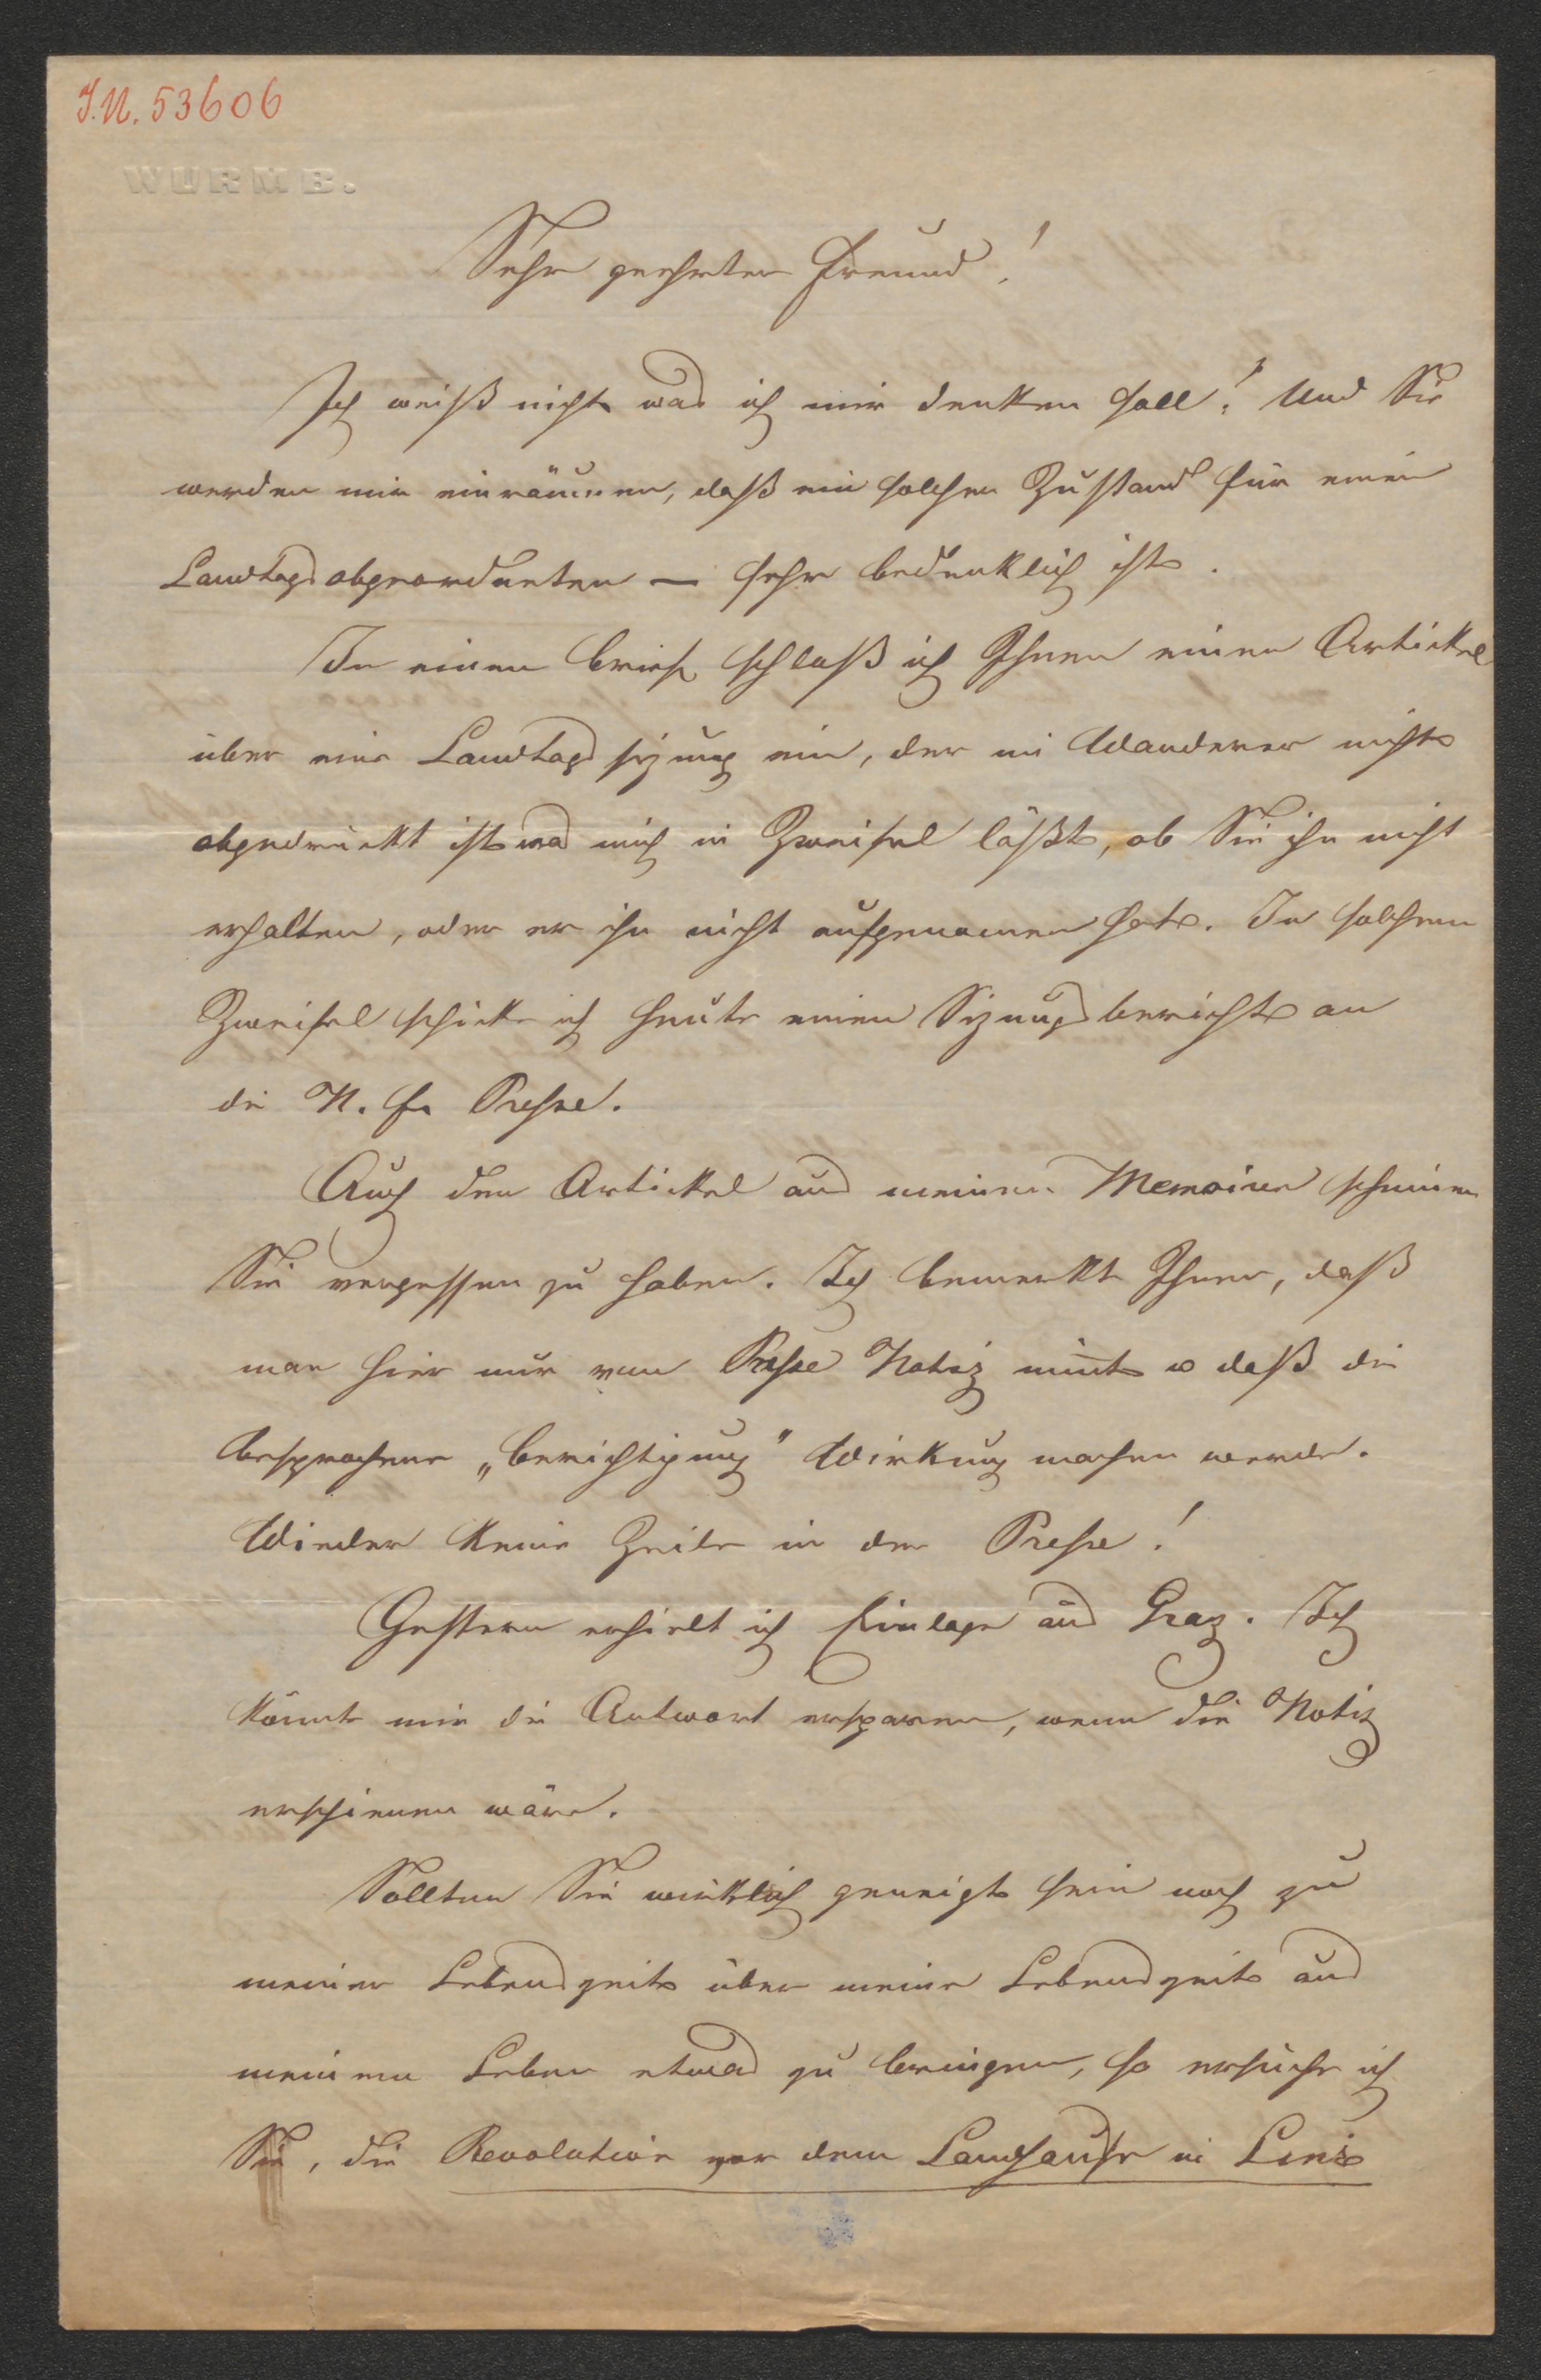 I.N. 53606
WURMB.
Sehr geehrter Freund!
Ich weiß nicht was ich mir denken soll! Und Sie
werden mir einräumen, daß ein solcher Zustand für einen
Landtagsabgeordneten — sehr bedenklich ist.
In einem Brief schloß ich Ihnen einen Artickel
über eine Landtagssizung ein, der im Wanderer nicht
abgedruckt ist was mich in Zweifel läßt, ob Sie ihn nicht
erhalten, oder er ihn nicht aufgenomen hat. In solchem
Zweifel schicke ich heute einen Sizungsbericht an
die N. fr. Presse.
Auch den Artickel aus meinen Memoiren scheinen
Sie vergessen zu haben. Ich bemerkte Ihnen, daß
man hier nur von Presse Notiz nimt u daß die
besprochene „Berichtigung" Wirkung machen werde.
Wieder keine Zeile in der Presse!
Gestern erhielt ich Einlage aus Graz. Ich
könnte mir die Antwort ersparen, wenn die Notiz
erschienen wäre.
Sollten Sie wirklich geneigt sein noch zu
meiner Lebenszeit über meine Lebenszeit aus
meinem Leben etwas zu bringen, so ersuche ich
Sie, die Revolution vor dem Landhause in Linz